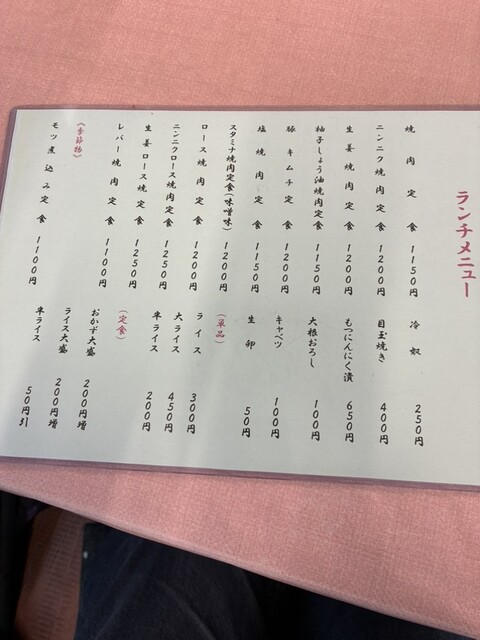 ランチメニュー
焼肉定食 1150円
ニンニク焼肉定食 1200円
生姜焼肉定食 1200円
柚子しょう油焼肉定食 1150円
豚キムチ定食 1200円
塩焼肉定食 1150円
スタミナ焼肉定食(味噌味) 1200円
ロース焼肉定食 1200円
ニンニクロース焼肉定食 1250円
生姜ロース焼定食 1250円
レバー焼肉定食 1100円
(季節物)
モツ煮込み定食 1100円
冷奴 250円
目玉焼き 400円
もつにんにく漬 650円
大根おろし 100円
キャベツ 100円
生卵 50円
(単品)
ライス 300円
大ライス 450円
半ライス 200円
(定食)
おかず大盛 200円増
ライス大盛 200円増
半ライス 50円引